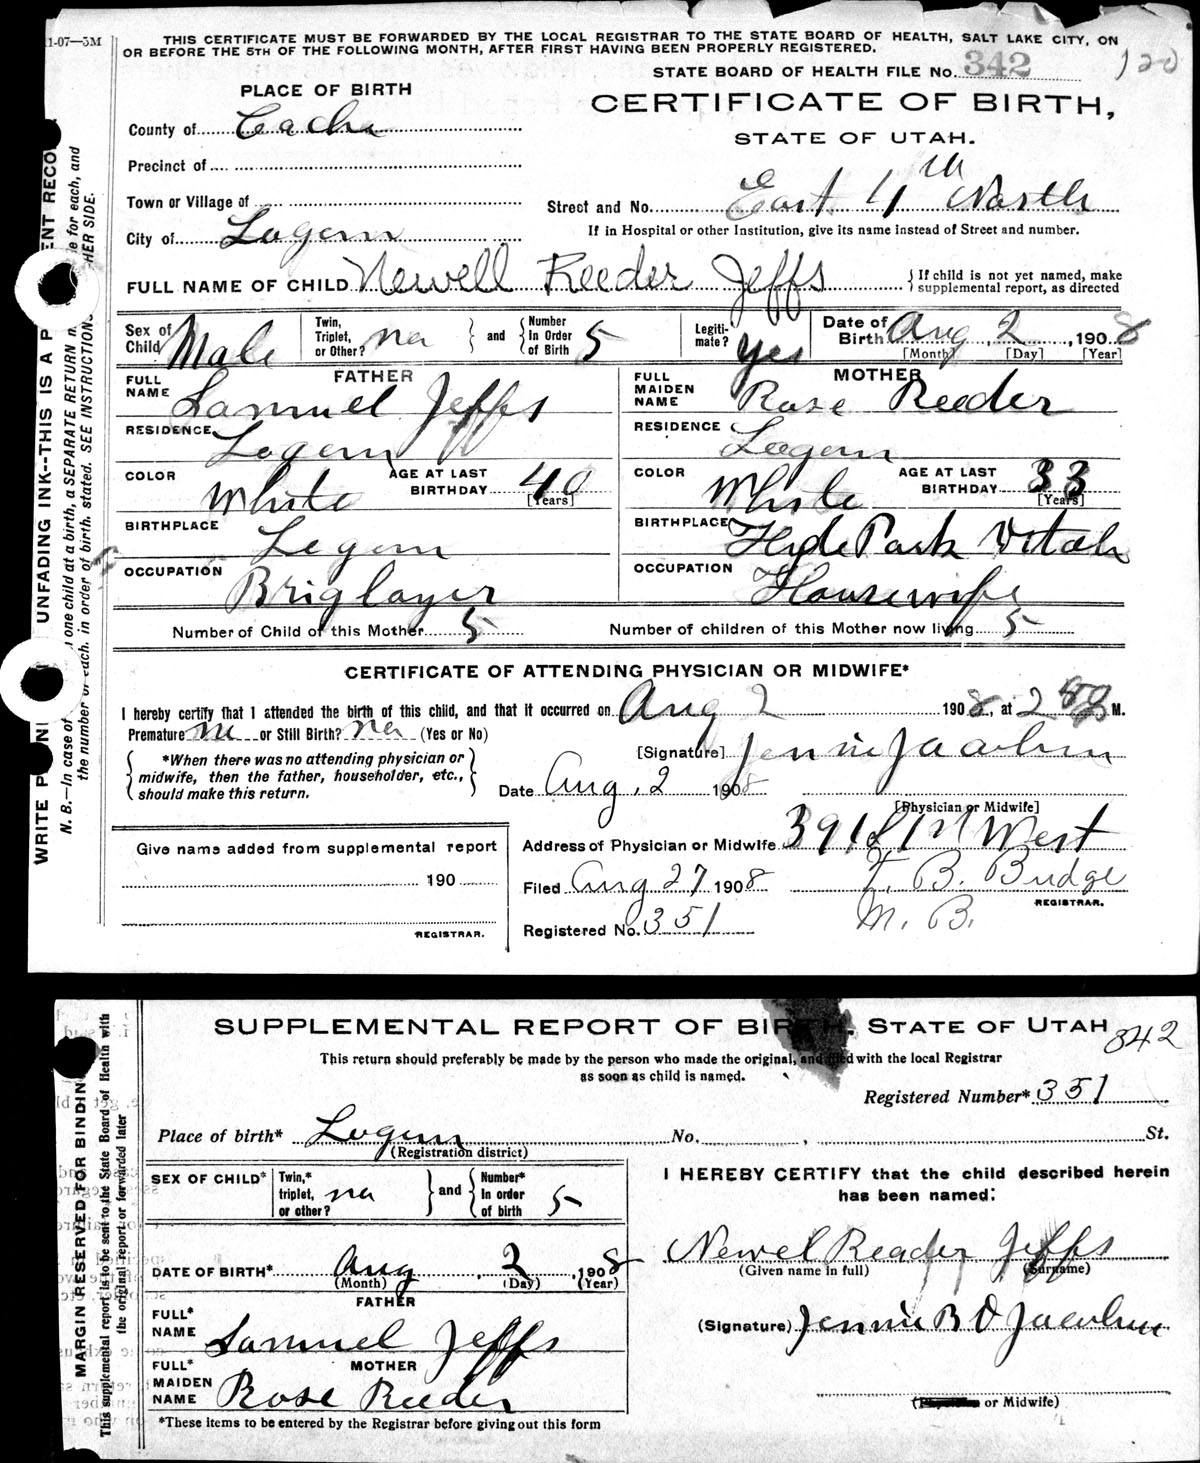 11-07—5M
THIS CERTIFICATE MUST BE FORWARDED BY THE LOCAL REGISTRAR TO THE STATE BOARD OF HEALTH, SALT LAKE CITY, ON
OR BEFORE THE 5TH OF THE FOLLOWING MONTH, AFTER FIRST HAVING BEEN PROPERLY REGISTERED.
STATE BOARD OF HEALTH FILE No. 342
120
PLACE OF BIRTH
CERTIFICATE OF BIRTH,
STATE OF UTAH.
County of Cache
Precinct of
Town or Village of
Street and No. East 4th North
City of Logan
If in Hospital or other Institution, give its name instead of Street and number.
FULL NAME OF CHILD Newell Reeder Jeffs
If child is not yet named, make
supplemental report, as directed
Sex of Child Male
Twin, Triplet, or Other? na and Number In Order of Birth 5
Legiti-mate? yes
Date of Birth Aug 2, 1908
[Month] [Day] [Year]
FATHER
FULL NAME Samuel Jeffs
RESIDENCE Logan
COLOR White AGE AT LAST BIRTHDAY 40
[Years]
BIRTHPLACE Logan
OCCUPATION Briglayer
MOTHER
FULL MAIDEN NAME Rose Reeder
RESIDENCE Logan
COLOR White AGE AT LAST BIRTHDAY 33
[Years]
BIRTHPLACE Hyde Park Utah
OCCUPATION Housewife
Number of Child of this Mother 5 Number of children of this Mother now living 5
CERTIFICATE OF ATTENDING PHYSICIAN OR MIDWIFE*
I hereby certify that I attended the birth of this child, and that it occurred on Aug 2 1908, at 2 M.
Premature na or Still Birth? na (Yes or No)
*When there was no attending physician or
midwife, then the father, householder, etc.,
should make this return.
[Signature] Jennie Jacobsen
Date Aug. 2 1908
[Physician or Midwife]
Address of Physician or Midwife 391 1st West
Filed Aug 27 1908 T. B. Budge
REGISTRAR. M. B.
Registered No. 351
Give name added from supplemental report
190
REGISTRAR.
WRITE UNFADING INK--THIS IS A ENT RECO
N. B.—In case of one child at a birth, a SEPARATE RETURN for each, and
the number of each, in order of birth, stated. SEE INSTRUCTIONS HER SIDE.
SUPPLEMENTAL REPORT OF BIRTH. STATE OF UTAH
342
This return should preferably be made by the person who made the original, and filed with the local Registrar
as soon as child is named.
Registered Number* 351
Place of birth* Logan No. , St.
(Registration district)
SEX OF CHILD*
Twin,* triplet, or other? na and Number* In order of birth 5
DATE OF BIRTH* Aug, 2, 1908
(Month) (Day) (Year)
FATHER
FULL* NAME Samuel Jeffs
MOTHER
FULL* MAIDEN NAME Rose Reeder
*These items to be entered by the Registrar before giving out this form
I HEREBY CERTIFY that the child described herein
has been named:
Newel Reader Jeffs
(Given name in full) (Surname)
(Signature) Jennie B D Jacobsen
(Physician or Midwife)
MARGIN RESERVED FOR BINDING
This supplemental report is to be sent to the State Board of Health with
the original report or forwarded later